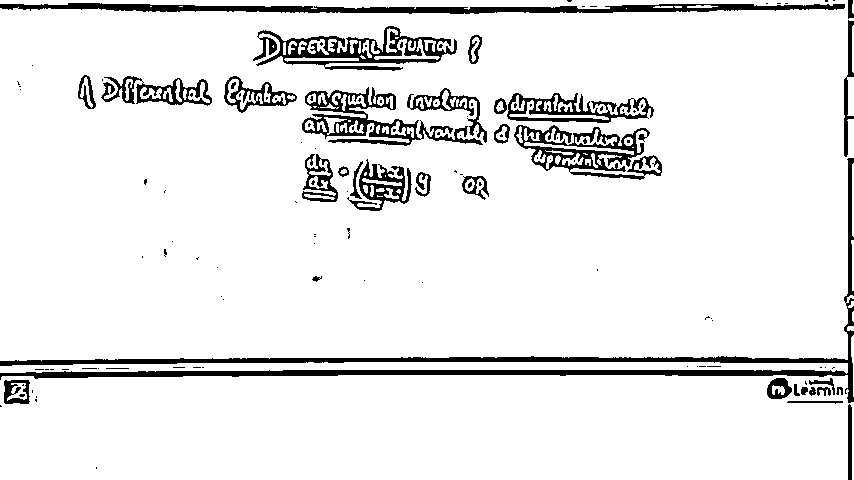 DIFFERENTIAL EQUATION ?
1) Differential Equation- an equation involving a dependent variable,
an independent variable & the derivative of
dependent variable
dy/dx = (1+x/1-x) y OR
Learning